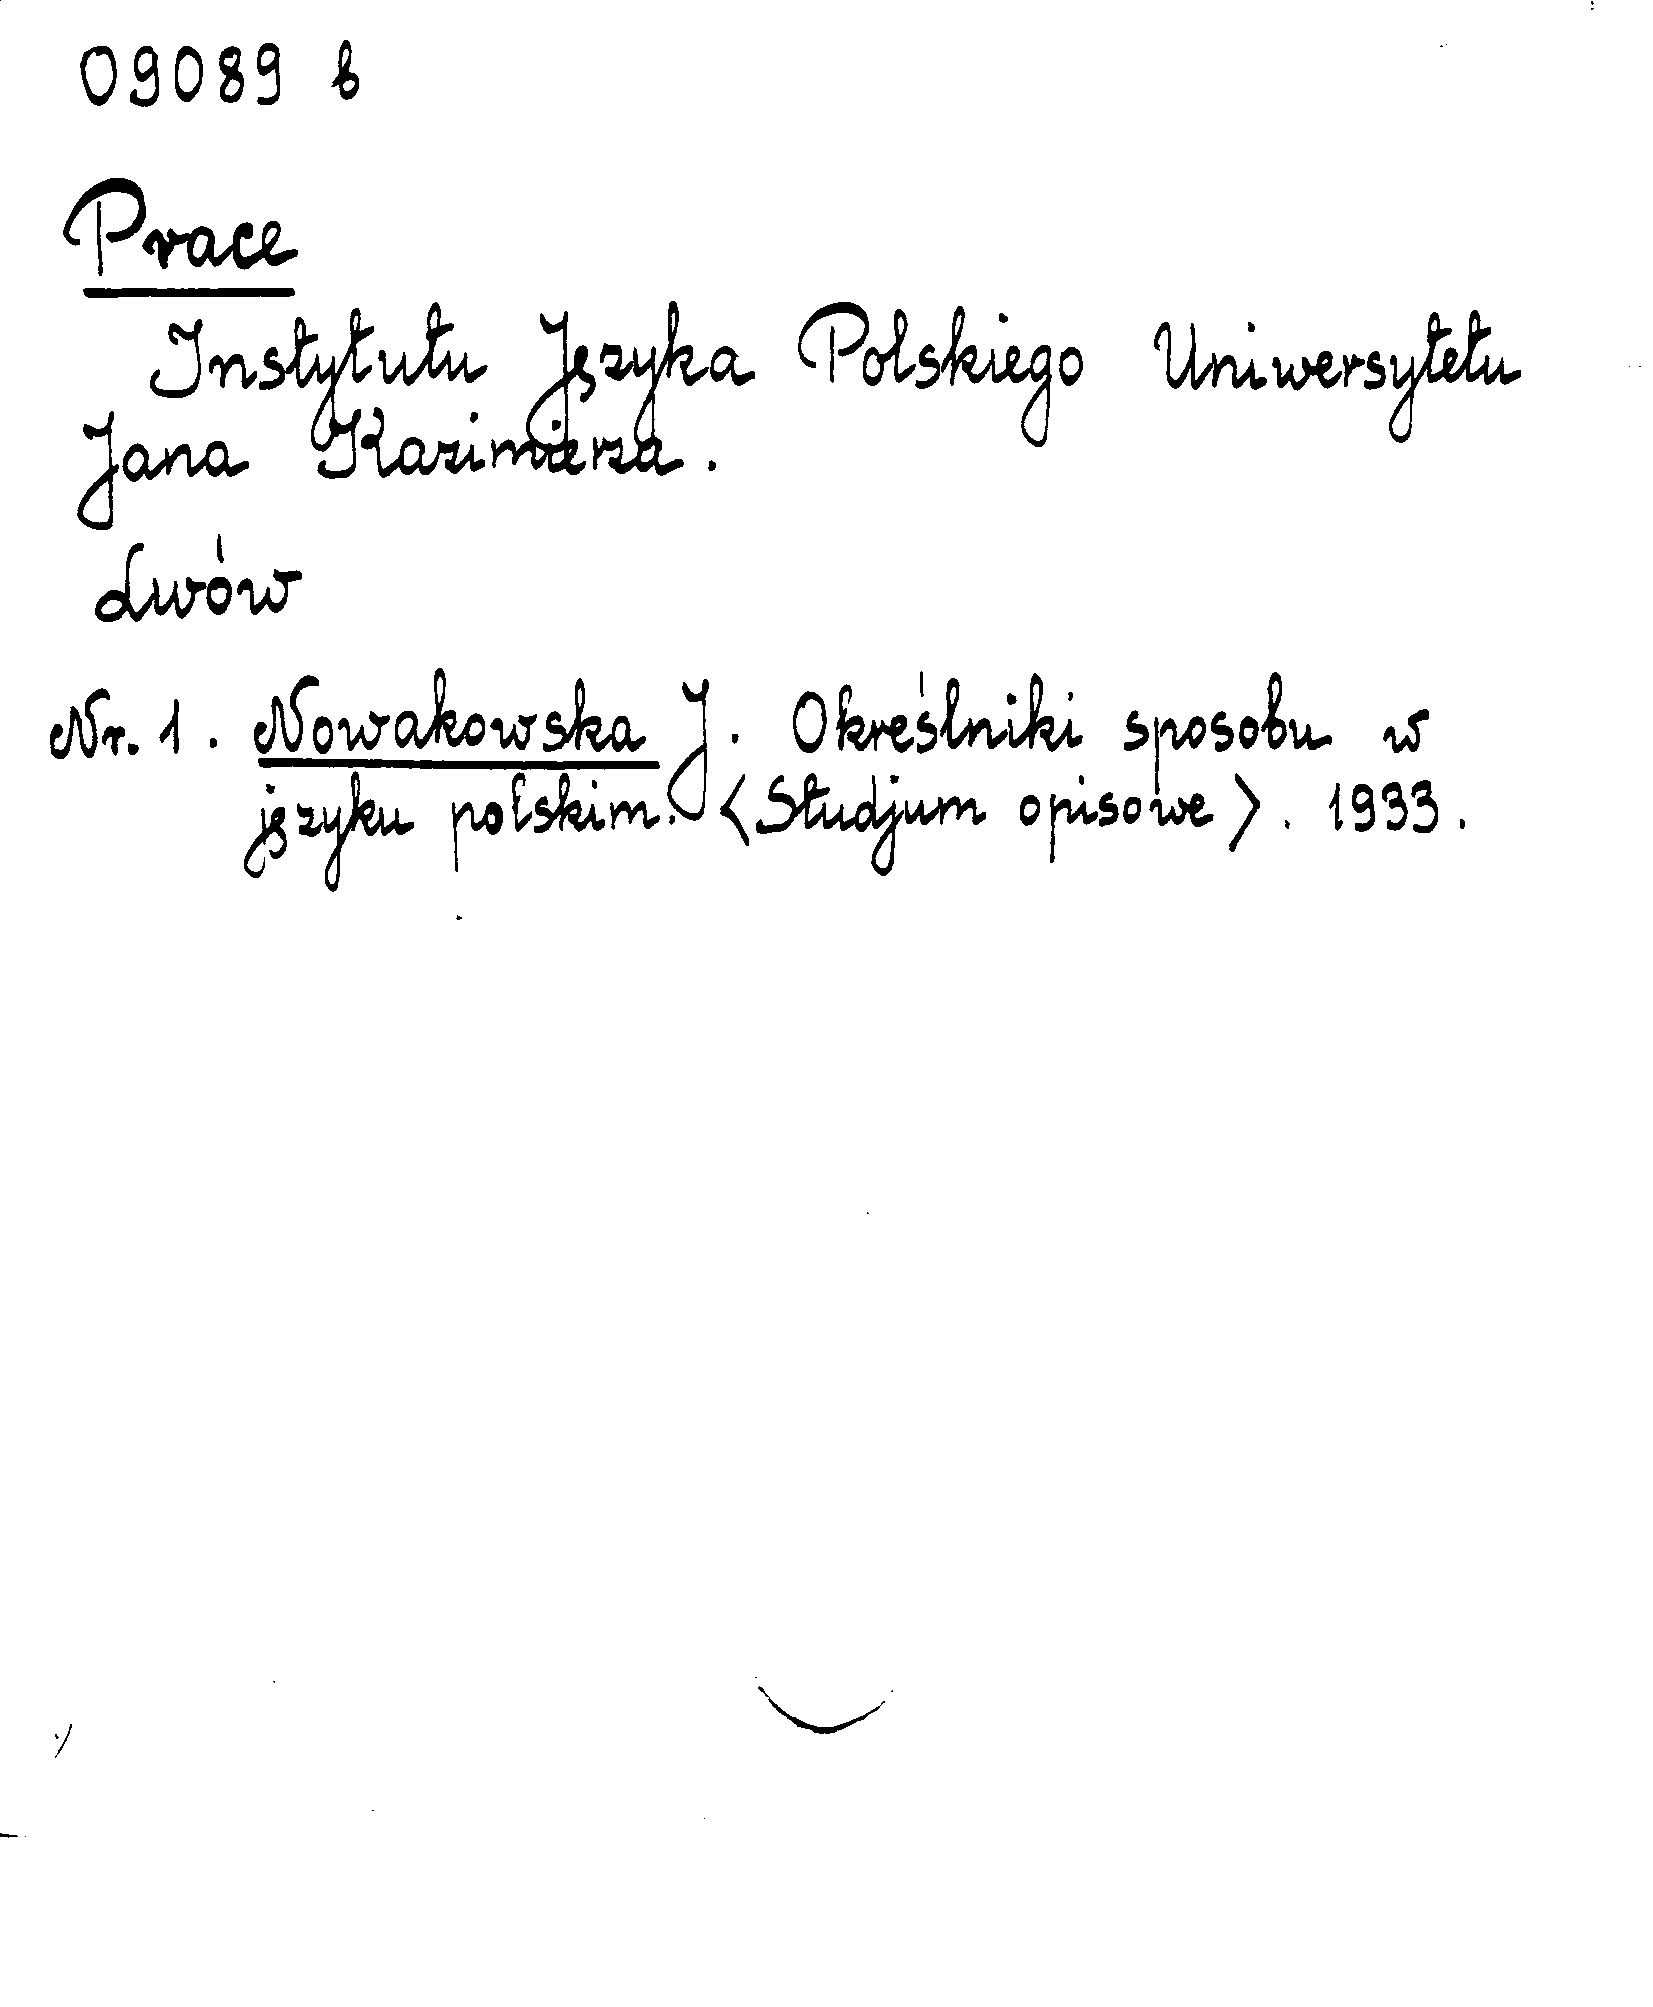 09089 b
Prace
Instytutu Języka Polskiego Uniwersytetu
Jana Kazimierza.
Lwów
Nr. 1. Nowakowska J. Określniki sposobu w
języku polskim. <Studjum opisowe>. 1933.